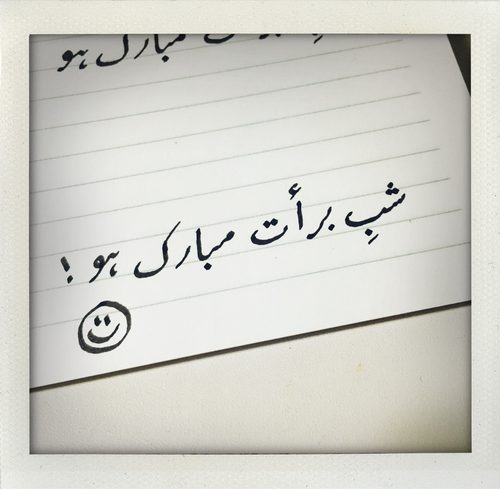 مبارک ہو
شبِ برأت مبارک ہو !
ت